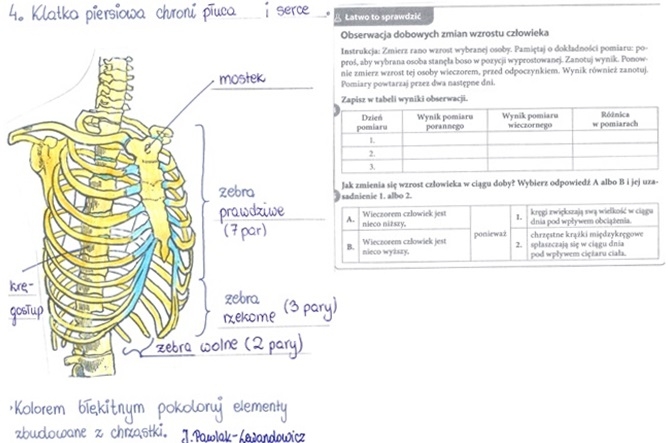 4. Klatka piersiowa chroni płuca i serce.
mostek
żebra
prawdziwe
(7 par)
krę-
gosłup
żebra
rzekome (3 pary)
żebra wolne (2 pary)
Kolorem błękitnym pokoloruj elementy
zbudowane z chrząstki. J.Pawlak-Lewandowicz
Łatwo to sprawdzić
Obserwacja dobowych zmian wzrostu człowieka
Instrukcja: Zmierz rano wzrost wybranej osoby. Pamiętaj o dokładności pomiaru: po-
proś, aby wybrana osoba stanęła boso w pozycji wyprostowanej. Zanotuj wynik. Ponow-
nie zmierz wzrost tej osoby wieczorem, przed odpoczynkiem. Wynik również zanotuj.
Pomiary powtarzaj przez dwa następne dni.
Zapisz w tabeli wyniki obserwacji.
Dzień pomiaru Wynik pomiaru porannego Wynik pomiaru wieczornego Różnica w pomiarach
1.
2.
3.
Jak zmienia się wzrost człowieka w ciągu doby? Wybierz odpowiedź A albo B i jej uza-
sadnienie 1. albo 2.
A. Wieczorem człowiek jest
nieco niższy,
B. Wieczorem człowiek jest
nieco wyższy,
ponieważ
1. kręgi zwiększają swą wielkość w ciągu
dnia pod wpływem obciążenia.
2. chrzęstne krążki międzykręgowe
spłaszczają się w ciągu dnia
pod wpływem ciężaru ciała.